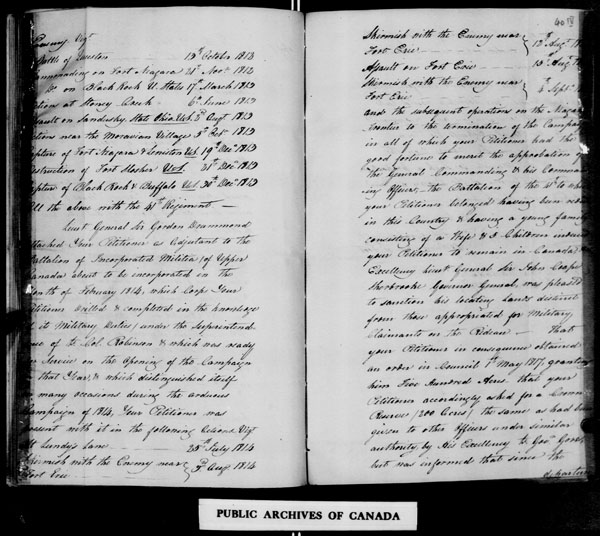 Enemy Vizt
Battle of Queuston 13th October 1812
Cannonading on Fort Niagara 21st Novr 1812
Do on Black Rock U. States 17 March 1813
Action at Stoney Creek 6th June 1813
Assault on Sandusky State Ohio U.S. 2d Augt 1813
Action near the Moravian Village 5th Octr 1813
Capture of Fort Niagara & Lewiston U.S. 19th Decr 1813
Destruction of Fort Slosher U.S. 21st Decr 1813
Capture of Black Rock & Buffalo U.S. 30th Decr 1813
All the above with the 41st Regiment —
Lieut General Sir Gordon Drummond
attached Your Petitioner as Adjutant to the
Battalion of Incorporated Militia of Upper
Canada about to be incorporated in the
Month of February 1814, which Corps Your
Petitioner drilled & completed in the knowledge
of its Military Duties/ under the Superintend
ence of Lt Col. Robinson & which was ready
for Service on the Opening of the Campaign
of that Year, & which distinguished itself
on many occasions during the arduous
Campaign of 1814, Your Petitioner was
present with it in the following Actions, Vizt
At Lundy's Lane 25th July 1814
Skirmish with the Enemy near
Fort Erie } 3d Augt 1814
Skirmish with the Enemy near
Fort Erie } 12th Augt
Assault on Fort Erie 15th Augt
Skirmish with the Enemy near
Fort Erie } 4 Septr
and the subsequent operations on the Niagara
Frontier to the termination of the Campaign
in all of which your Petitioner had the
good fortune to merit the approbation of
the General Commanding & his Command
ing Officer, the Battalion of the 41st to which
your Petitioner belonged having been reduced
in this Country & having a young family
consisting of a Wife & 3 Children induced
your Petitioner to remain in Canada, His
Excellency Lieut General Sir John Coape
Sherbrooke Governor General, was pleased
to sanction his locating Lands distinct
from those appropriated for Military
Claimants on the Rideau — That
your Petitioner in consequence obtained
an order in Council 1st May 1817, granting
him Five Hundred Acres that your
Petitioner accordingly asked for a Crown
Reserve (200 Acres) the same as had been
given to other Officers under similar
authority by His Excellency to Govr Gore,
but was informed that since the
departure
PUBLIC ARCHIVES OF CANADA